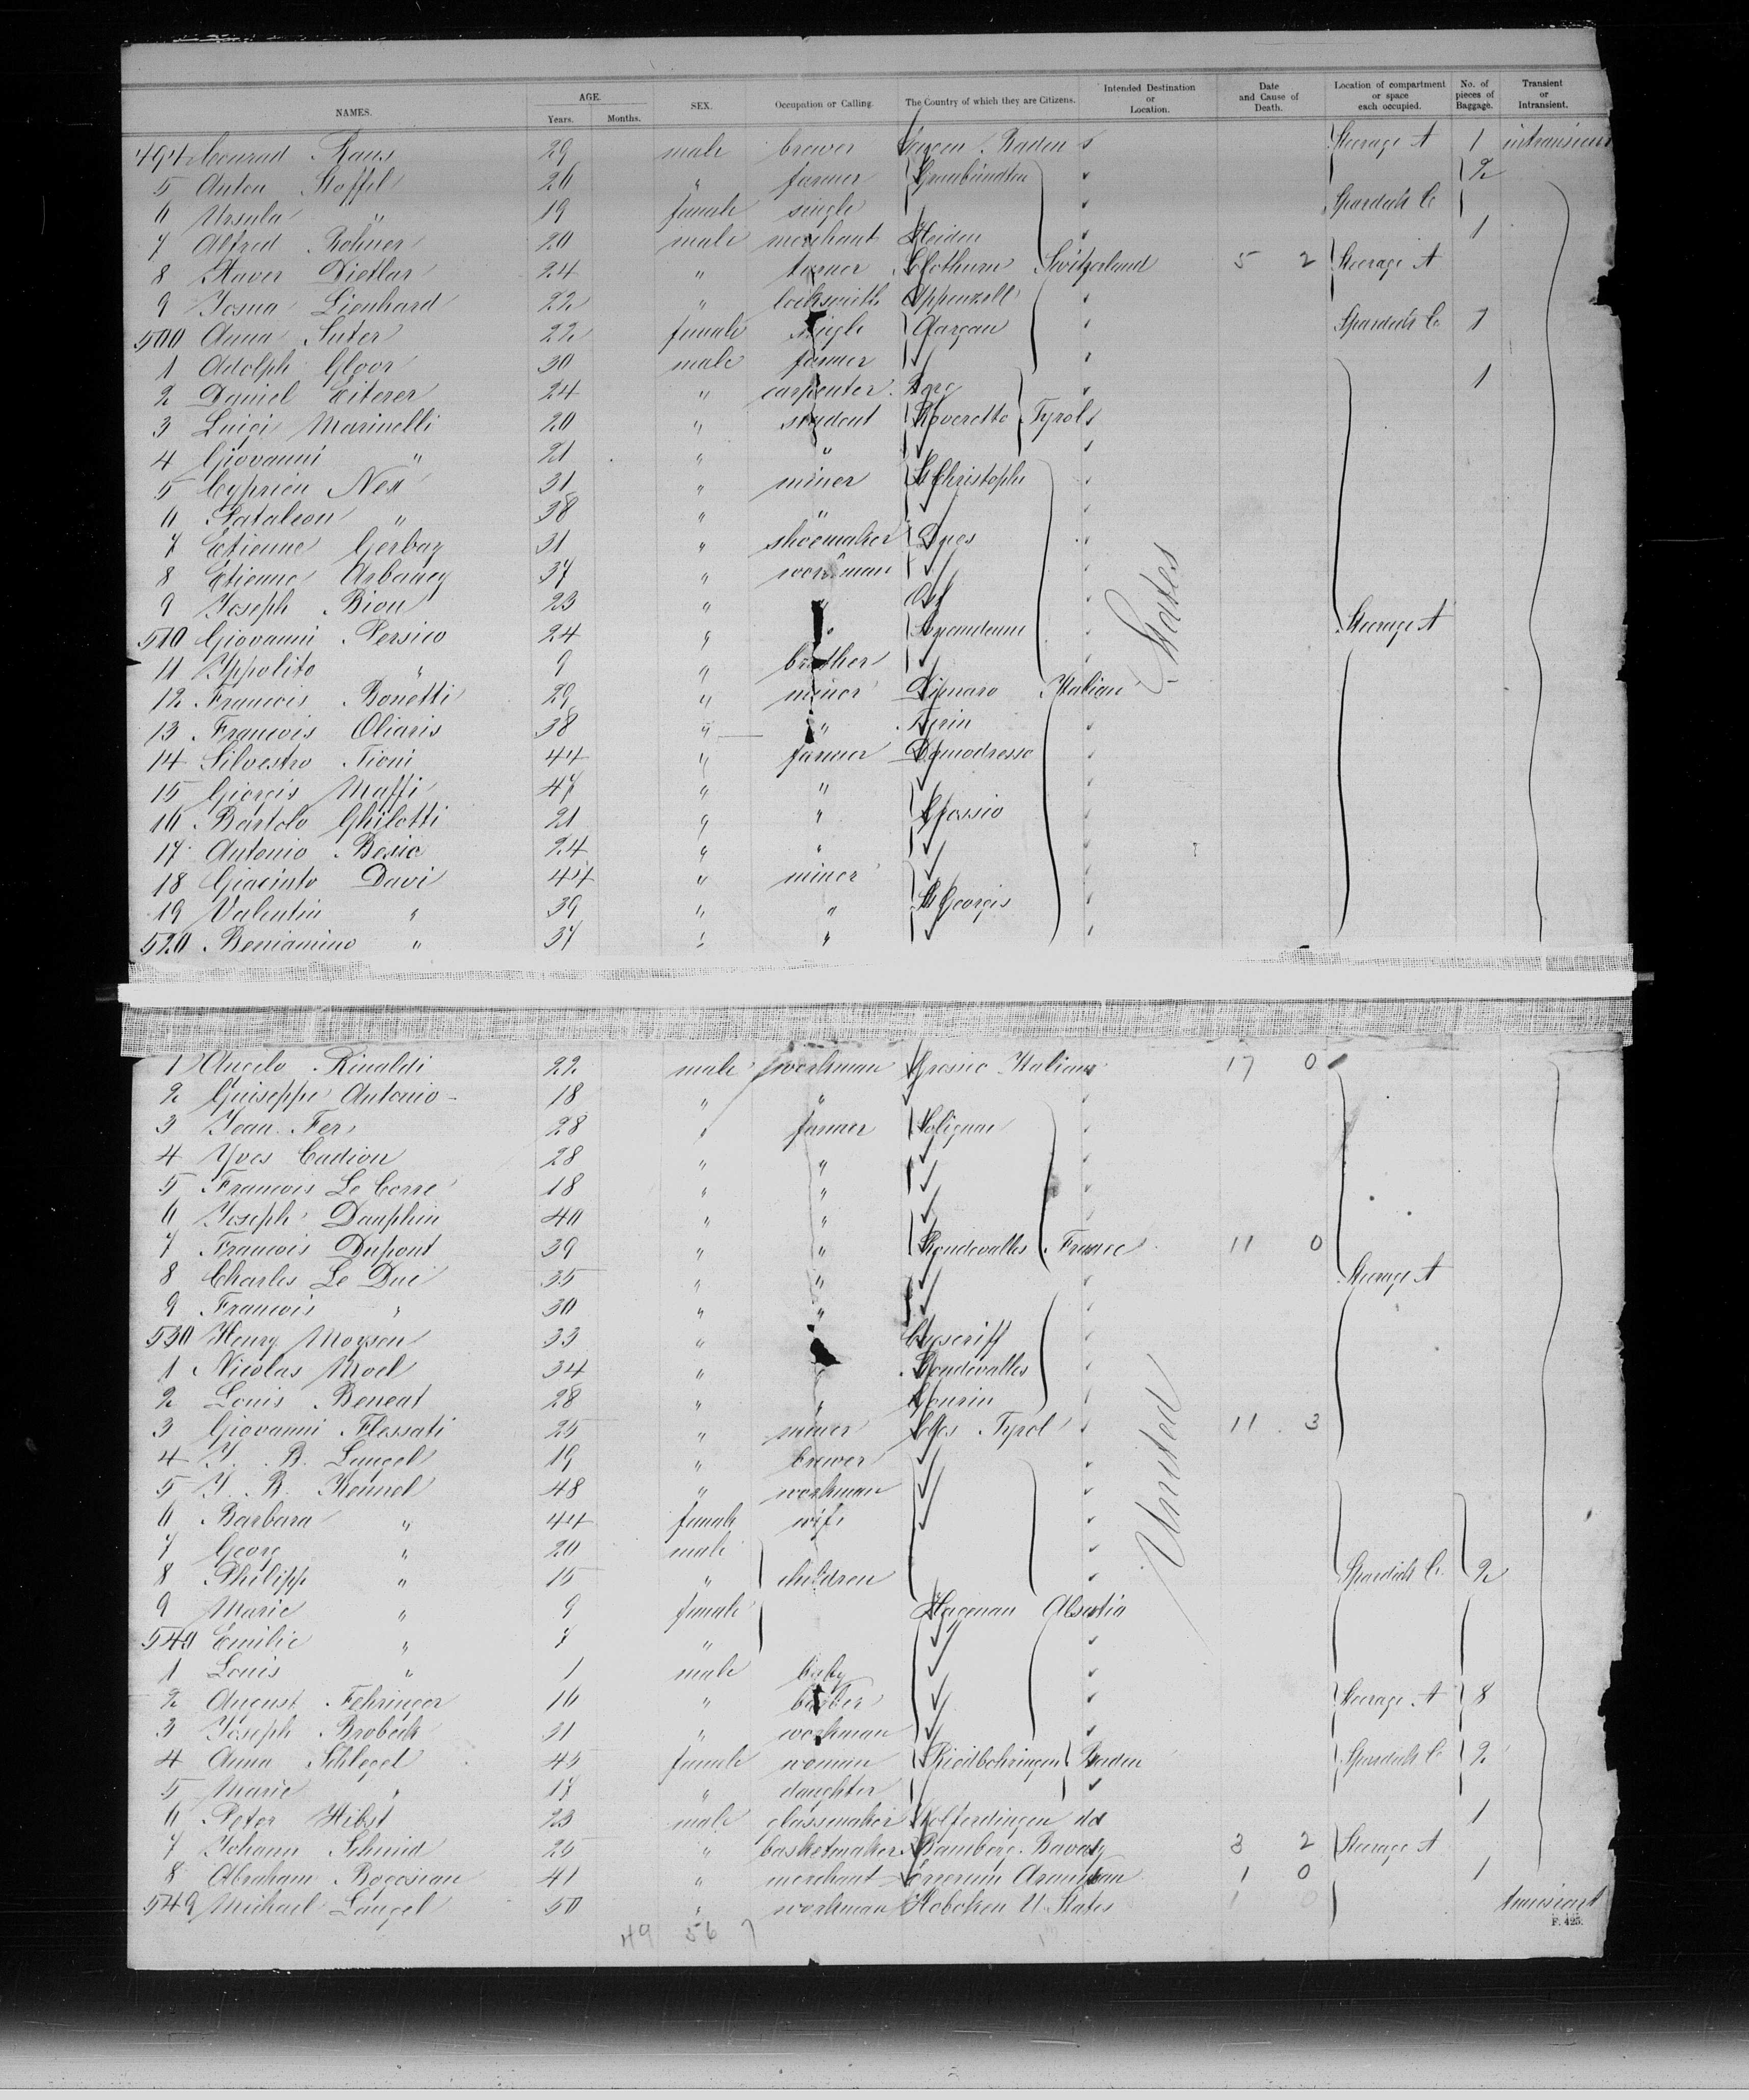 NAMES. AGE. Years. Months. SEX. Occupation or Calling. The Country of which they are Citizens. Intended Destination or Location. Date and Cause of Death. Location of compartment or space each occupied. No. of pieces of Baggage. Transient or Intransient.
494 Conrad 29 male brewer Baden Steerage A 1 intransient
5 Anton Stoffel 26 " farmer Graubündten 2
6 Ursula " 19 female single Spardeck C
7 Alfred Rohner 20 male merchant Heiden 1
8 Xaver Dietlar 24 " turner Switzerland 5 2 Steerage A
9 Josua Lienhard 22 " locksmith Appenzell
500 Anna Suter 22 female single Aargau Spardeck C 1
1 Adolph Gloor 30 male farmer
2 Daniel Eiterer 24 " carpenter 1
3 Luigi Marinelli 20 " student Roveretto Tyrol
4 Giovanni " 21 " "
5 Cyprien Nex 31 " miner St Christophe
6 Pataleon " 38 " "
7 Etienne Gerbaz 31 " shoemaker
8 Etienne Arbaney 37 " workman
9 Joseph Bion 23 " "
510 Giovanni Persico 24 " " Steerage A
11 Yppolito " 9 " brother
12 Francois Bonetti 29 " miner Dimaro Italian States
13 Francois Oliaris 38 " " Turin
14 Silvestro Tioni 44 " farmer
15 Giorgis Maffi 47 " "
16 Bartolo Ghilotti 21 " "
17 Antonio 24 " "
18 Giacinto Davi 44 " miner
19 Valentin " 39 " " St Georgis
520 Beniamino " 37 " "
1 Angelo Rinaldi 22 male workman Italian 17 0
2 Guiseppe Antonio 18 " "
3 Jean Fer 28 " farmer
4 Yves Cadiou 28 " "
5 Francois Le Corre 18 " "
6 Joseph Dauphin 40 " "
7 Francois Dupont 39 " " France 11 0
8 Charles Le Duc 35 " " Steerage A
9 Francois " 30 " "
530 Henry Moysen 33 "
1 Nicolas Moel 34 "
2 Louis Beneat 28 " " Gourin
3 Giovanni Flessati 25 " miner Cles Tyrol 11 3
4 J. B. Langel 19 " brewer
5 J. B. Kennel 48 " workman
6 Barbara " 44 female wife United
7 Georg " 20 male
8 Philipp " 15 " children Spardeck C. 2
9 Marie " 9 female Hagenau Alsatia
540 Emilie " 7 "
1 Louis " 1 male baby
2 August Fehringer 16 " Steerage A 8
3 Joseph Brobeck 31 " workman
4 Anna Schlegel 45 female woman Riedbohringen Baden Spardeck C 2
5 Marie " 17 " daughter
6 Peter Hibst 23 male glassmaker Wolferdingen do 1
7 Johann Schmid 25 " basketmaker Bamberg Bavaria 3 2 Steerage A
8 Abraham Bogosian 41 " merchant Armenian 1 0 1
549 Michael Langel 50 " workman Hoboken U. States 1 0 transient
F. 425.
49 56 7